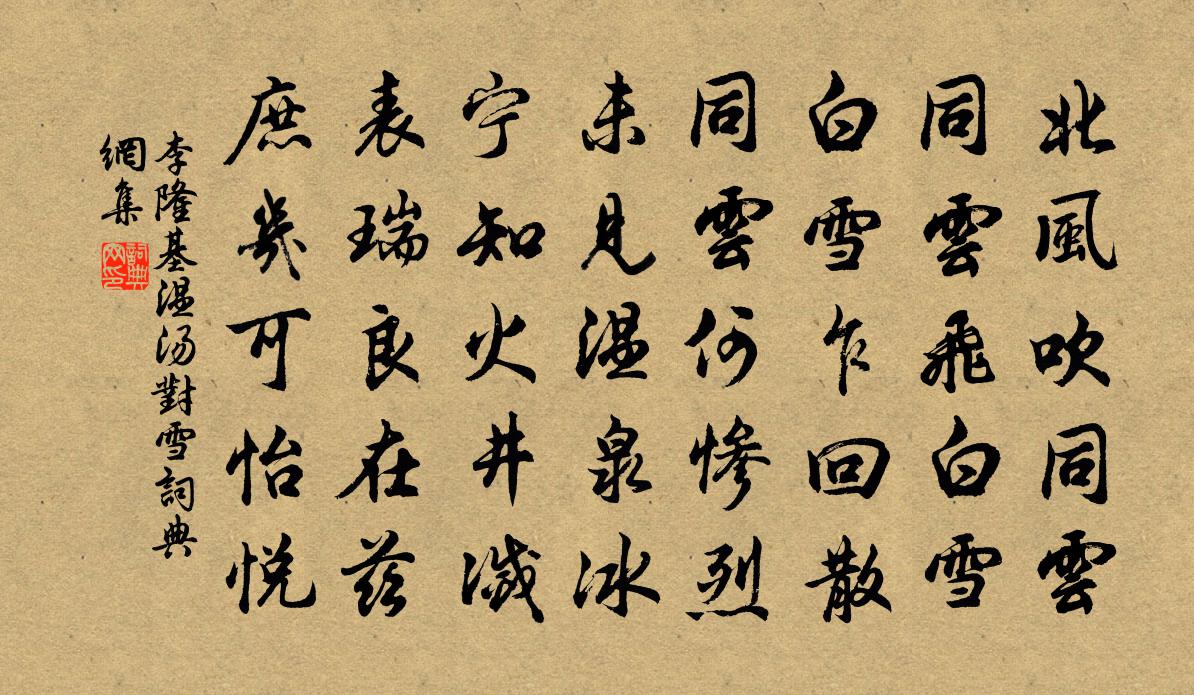 北風吹同雲
同雲飛白雪
白雪乍回散
同雲何慘烈
未見温泉冰
宁知火井滅
表瑞良在兹
庶幾可怡悅
李隆基温汤對雪詞典
網集
詞典
网印